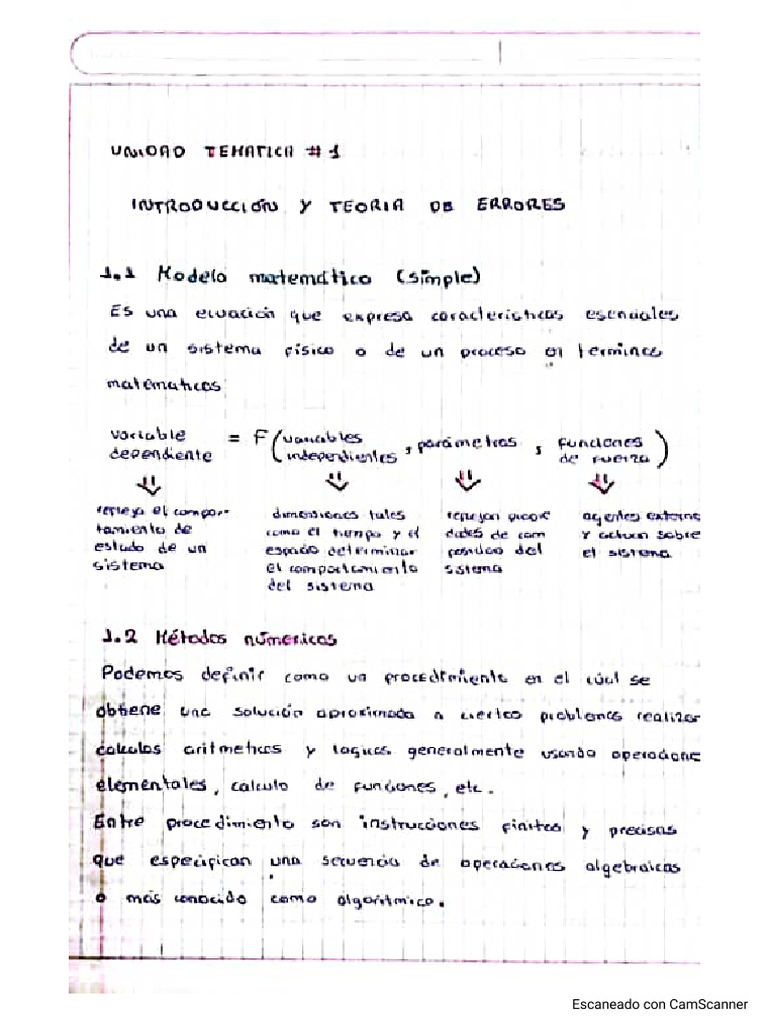 UNIDAD TEMATICA # 1
INTRODUCCIÓN Y TEORIA DE ERRORES
1.1 Modelo matemático (simple)
Es una ecuación que expresa características esenciales
de un sistema físico o de un proceso en terminos
matematicos
variable dependiente = F (variables independientes, parámetros, funciones de fuerza)
refleja el compor-
tamiento de
estado de un
sistema
dimensiones tales
como el tiempo y el
espacio determinar
el comportamiento
del sistema
reflejan propie
dades de com
posicion del
sistema
agentes externo
y actuan sobre
el sistema
1.2 Métodos númericos
Podemos definir como un procedimiento en el cúal se
obtiene una solución aproximada a ciertos problemas realizar
calculos aritmeticos y logicos generalmente usando operacione
elementales, calculo de funciones, etc.
Entre procedimiento son instrucciones finitas y precisas
que especifican una secuencia de operaciones algebraicas
o más conocido como algoritmico.
Escaneado con CamScanner